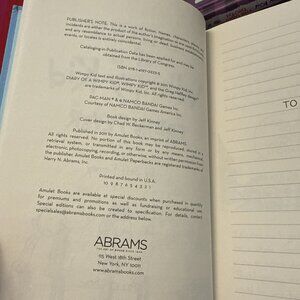 PUBLISHER'S NOTE: This is a work of fiction. Names, characters, places, and
incidents are either the product of the author's imagination or are used fictitiously,
and any resemblance to actual persons, living or dead, business establishments,
events, or locales is entirely coincidental.
Cataloging-in-Publication Data has been applied for and may be
obtained from the Library of Congress.
ISBN
Wimpy Kid text and illustrations copyright © 2011 Wimpy Kid, Inc.
DIARY OF A WIMPY KID®, WIMPY KID™, and the Greg Heffley design™
are trademarks of Wimpy Kid, Inc. All rights reserved.
PAC-MAN ® & © NAMCO BANDAI Games Inc.
Courtesy of NAMCO BANDAI Games America Inc.
Book design by Jeff Kinney
Cover design by Chad W. Beckerman and Jeff Kinney
Published in 2011 by Amulet Books, an imprint of ABRAMS.
All rights reserved. No portion of this book may be reproduced, stored in a
retrieval system, or transmitted in any form or by any means, mechanical,
electronic, photocopying, recording, or otherwise, without written permission from
the publisher. Amulet Books and Amulet Paperbacks are registered trademarks of
Harry N. Abrams, Inc.
Printed and bound in U.S.A.
10 9 8 7 6 5 4 3 2 1
Amulet Books are available at special discounts when purchased in quantity
for premiums and promotions as well as fundraising or educational use.
Special editions can also be created to specification. For details, contact
specialsales@abramsbooks.com or the address below.
ABRAMS
THE ART OF BOOKS SINCE 1949
115 West 18th Street
New York, NY 10011
www.abramsbooks.com
TO